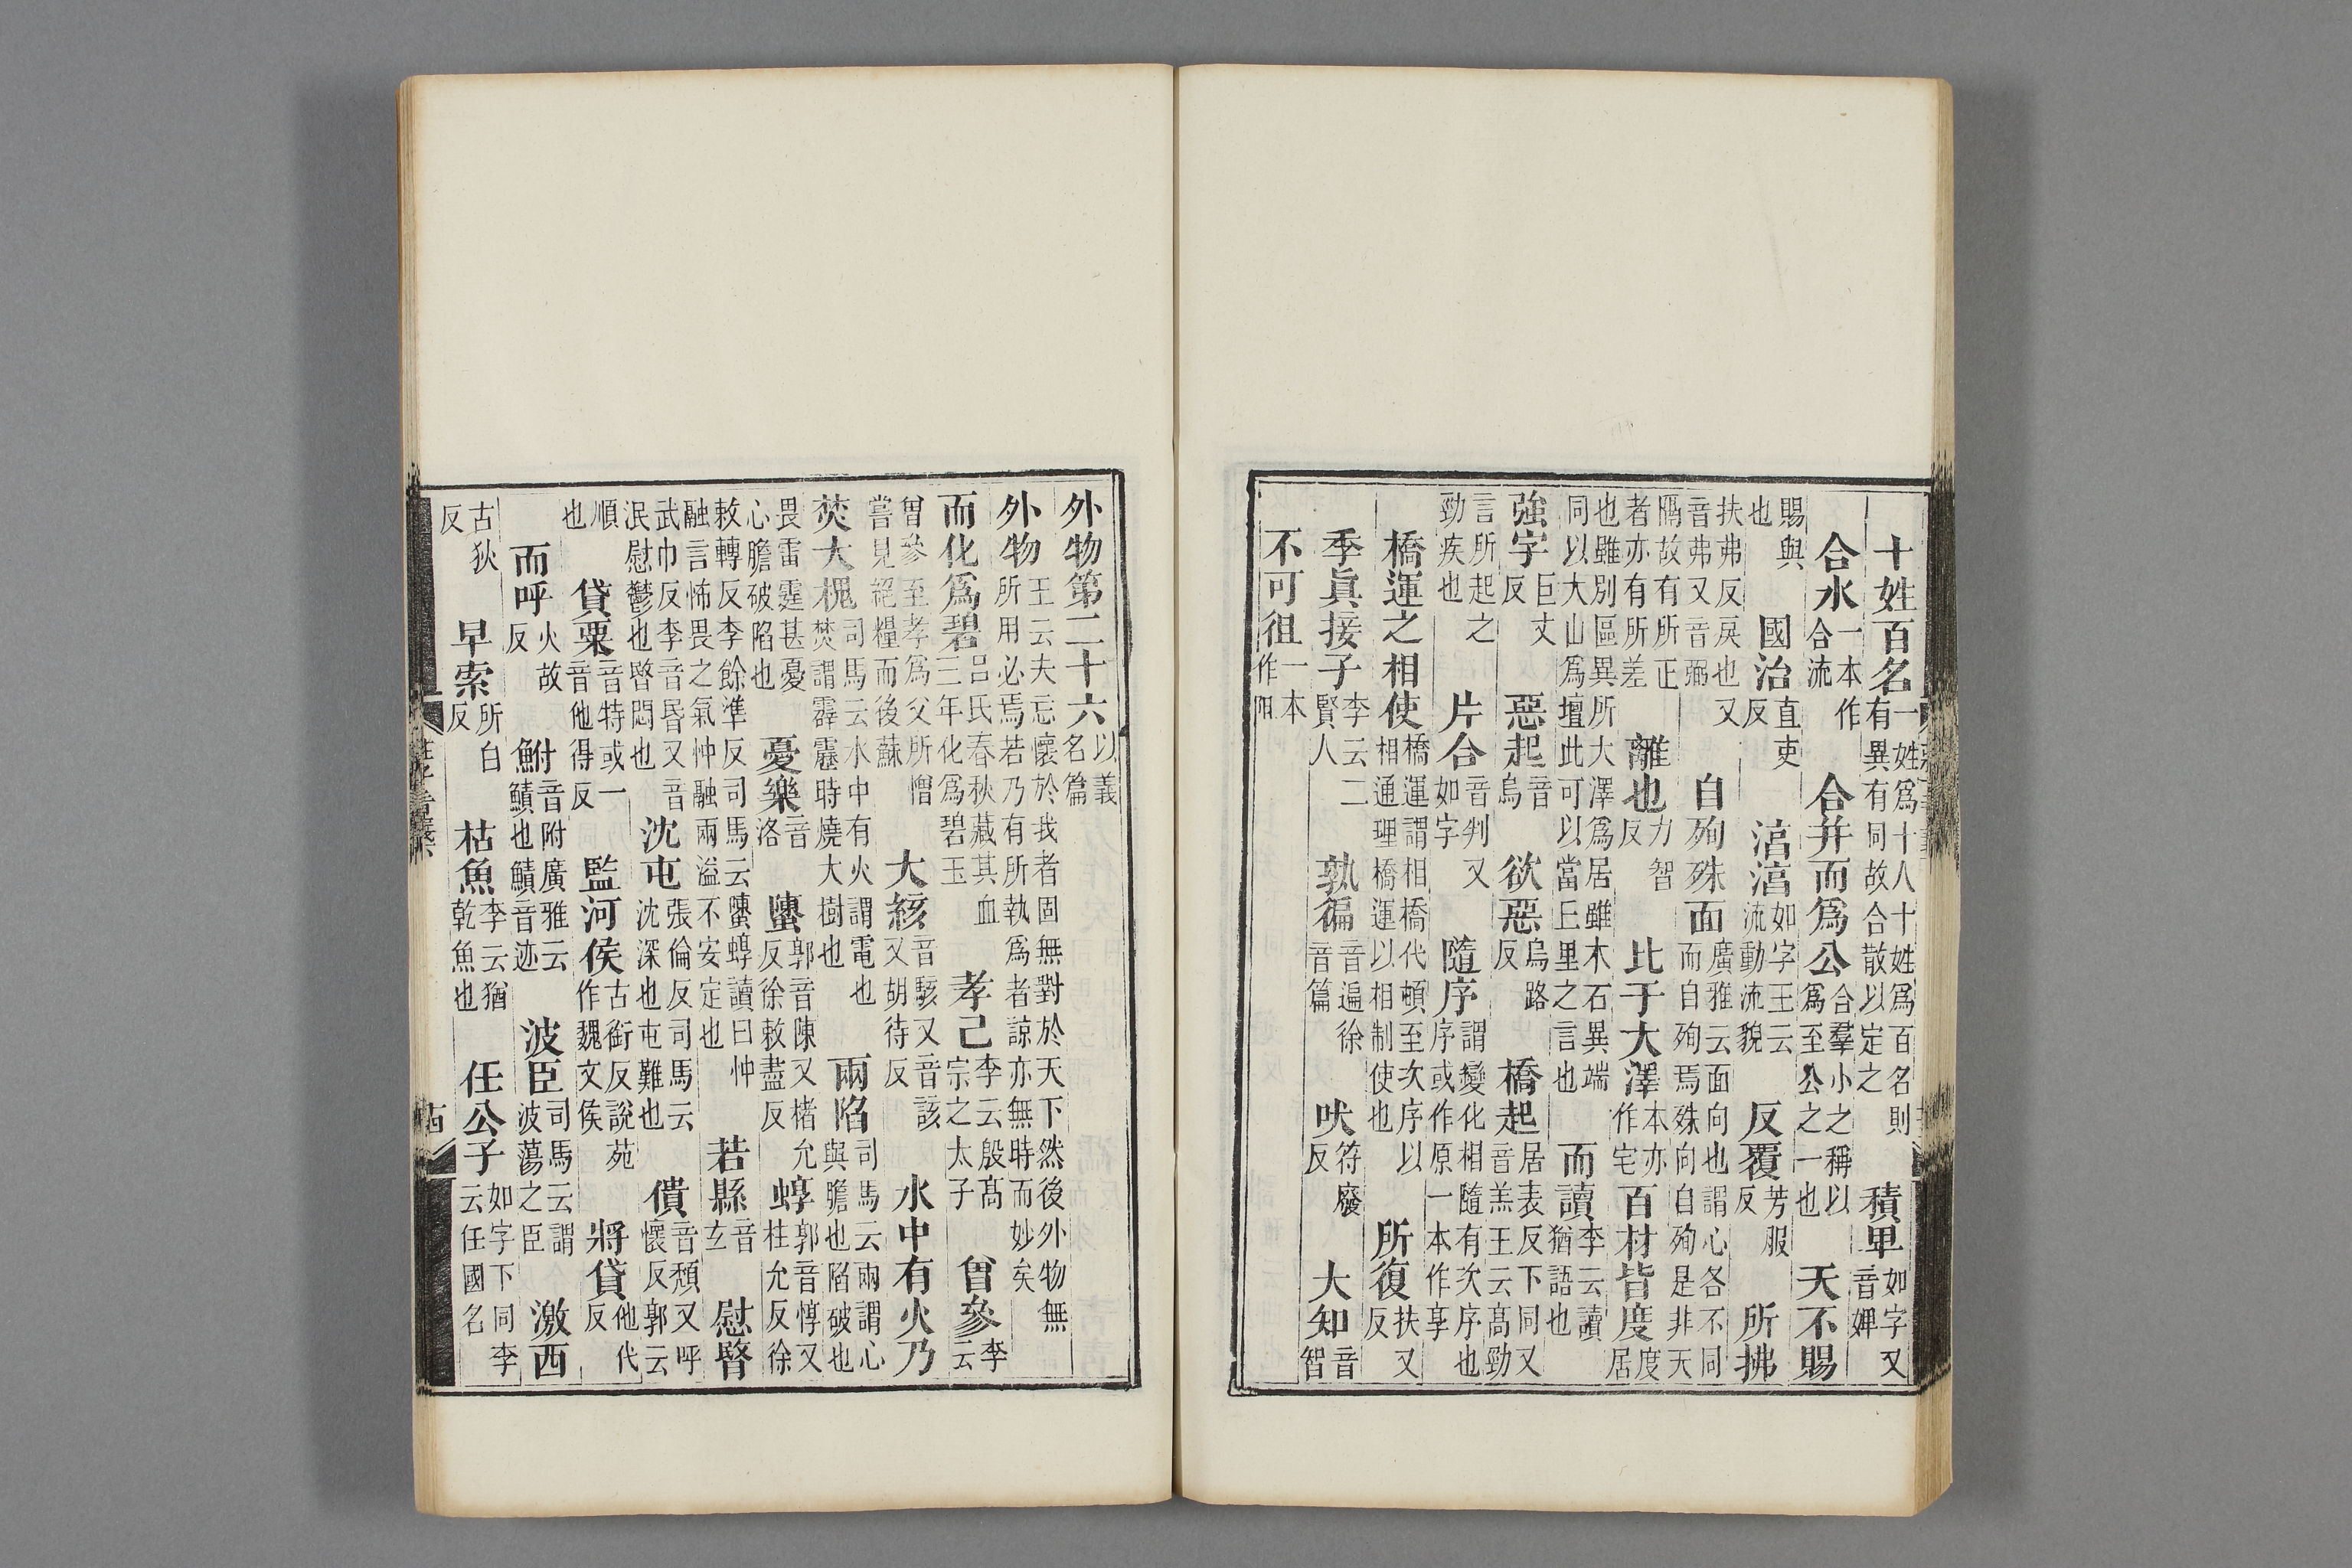 十姓百名一姓爲十八十姓爲百名則有異有同故合散以定之積卑如字又音婢
合水一本作合流合并而爲公合羣小之稱以爲至公之一也天不賜
賜與也國治直吏反湻湻如字王云流動流貌反覆芳服反所拂
扶弗反戾也又音弗又音弼自殉殊面廣雅云面向也謂心各不同而自殉焉殊向自殉是非天
隔故有所正者亦有所差離也力智反比于大澤本亦作宅百材皆度度居
也雖別區異所大澤爲居雖木石異端同以大山爲壇此可以當丘里之言也而讀李云讀猶語也
強字巨丈反惡起音烏欲惡烏路反橋起居表反下同又音羔王云髙勁
言所起之勁疾也片合音判又如字隨序謂變化相隨有次序也序或作原一本作享
橋運之相使橋運謂相橋代頓至次序以相通理橋運以相制使也所復扶又反
季眞接子李云二賢人孰徧音遍徐音篇吠符廢反大知音智
不可徂一本作阻
外物第二十六以義名篇
外物王云夫忘懷於我者固無對於天下然後外物無所用必焉若乃有所執爲者諒亦無時而妙矣
而化爲碧呂氏春秋藏其血三年化爲碧玉孝己李云殷髙宗之太子曾參李云
曾參至孝爲父所憎嘗見絕糧而後蘇大絯音駭又音該又胡待反水中有火乃
焚大槐司馬云水中有火謂電也焚謂霹靂時燒大樹也兩陷司馬云兩謂心與膽也陷破也
畏雷霆甚憂心膽破陷也憂樂音洛螴郭音陳又楮允反徐敕盡反蜳郭音惇又柱允反徐
敕轉反李餘準反司馬云螴蜳讀曰忡融言怖畏之氣忡融兩溢不安定也若縣音玄慰暋
武巾反李音昬又音泯慰鬱也暋悶也沈屯張倫反司馬云沈深也屯難也僓音頹又呼懷反郭云
順也貸粟音特或一音他得反監河侯古銜反說苑作魏文侯將貸他代反
而呼火故反鮒音附廣雅云鰿也鰿音迹波臣司馬云謂波蕩之臣激西
古狄反早索所白反枯魚李云猶乾魚也任公子如字下同李云任國名